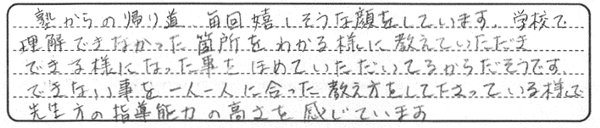 塾からの帰り道、毎回嬉しそうな顔をしています。学校で
理解できなかった箇所をわかる様に教えていただき
できる様になった事をほめていただいてるからだそうです。
できない事を一人一人に合った教え方をして下さっている様で
先生方の指導能力の高さを感じています